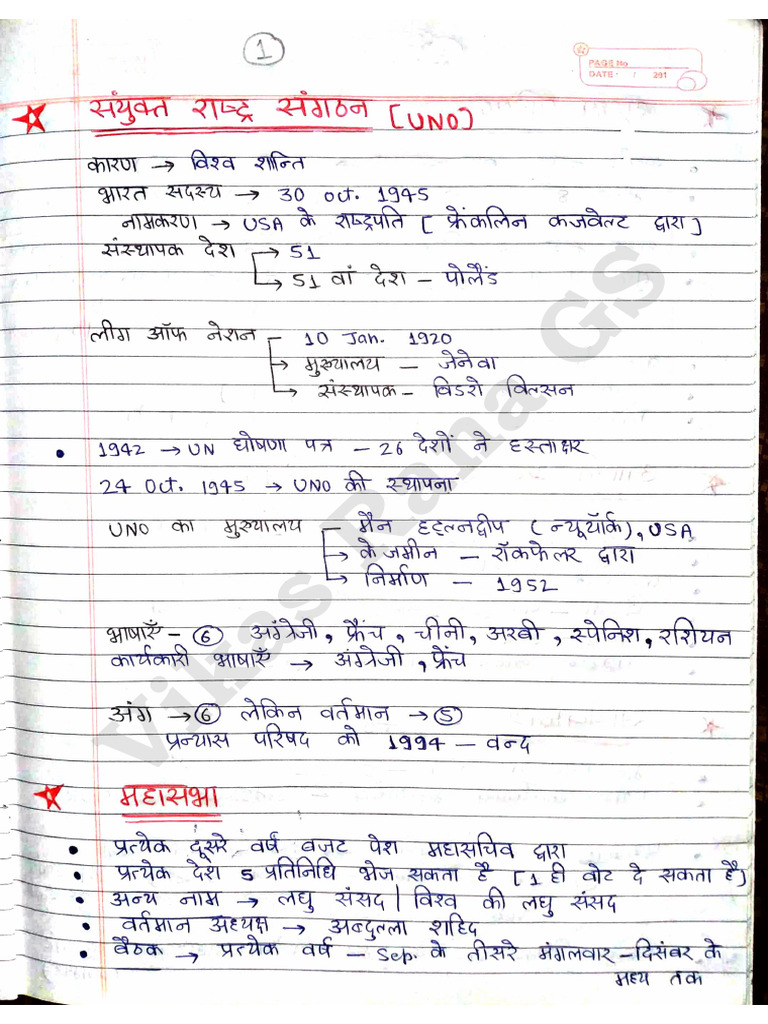 1
PAGE No
DATE: / 201
संयुक्त राष्ट्र संगठन [UNO]
कारण → विश्व शान्ति
भारत सदस्य → 30 oct. 1945
नामकरण → USA के राष्ट्रपति [ फ्रेंकलिन रूजवेल्ट द्वारा ]
संस्थापक देश → 51
→ 51 वां देश – पोलैंड
लीग ऑफ नेशन – 10 Jan. 1920
→ मुख्यालय – जेनेवा
→ संस्थापक – विडरो विल्सन
• 1942 → UN घोषणा पत्र – 26 देशों ने हस्ताक्षर
24 Oct. 1945 → UNO की स्थापना
UNO का मुख्यालय – मैन हट्लनद्वीप ( न्यूयॉर्क ), USA
→ के जमीन – रॉकफेलर द्वारा
→ निर्माण – 1952
भाषाएँ – 6 अंग्रेजी, फ्रैंच, चीनी, अरबी, स्पेनिश, रशियन
कार्यकारी भाषाएँ → अंग्रेजी, फ्रेंच
अंग → 6 लेकिन वर्तमान → 5
प्रन्यास परिषद को 1994 – बन्द
महासभा
• प्रत्येक दूसरे वर्ष बजट पेश महासचिव द्वारा
• प्रत्येक देश 5 प्रतिनिधि भेज सकता है [1 ही वोट दे सकता है]
• अन्य नाम → लघु संसद | विश्व की लघु संसद
• वर्तमान अध्यक्ष → अब्दुल्ला शहिद
• बैठक → प्रत्येक वर्ष – Sep. के तीसरे मंगलवार – दिसंबर के
मध्य तक
Vikas Rana GS